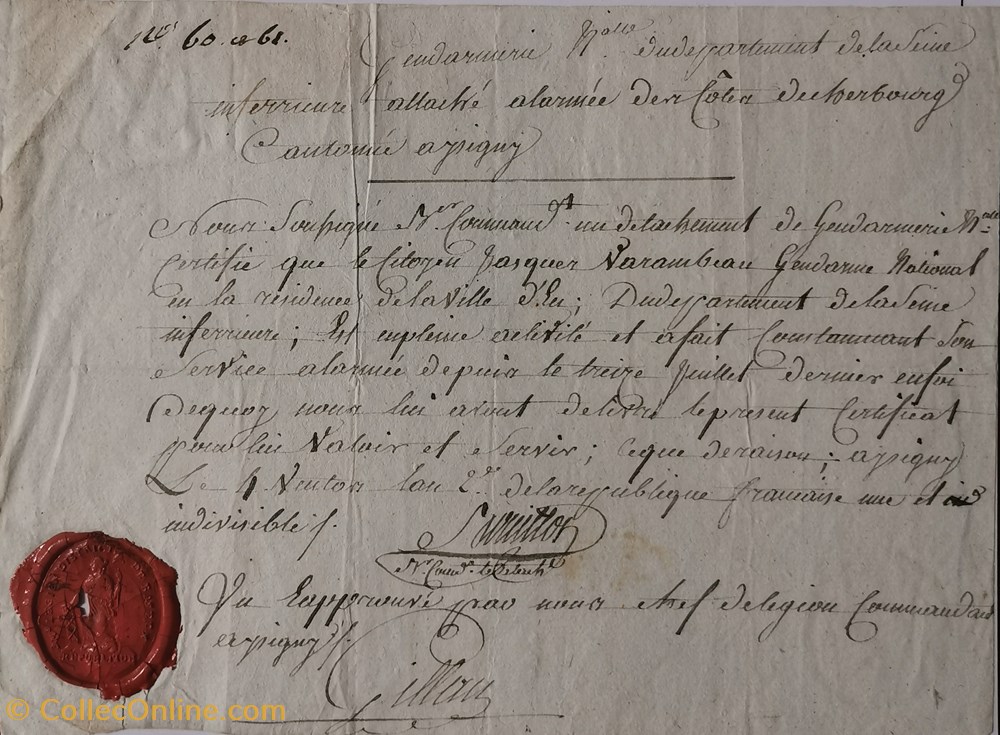 Nos 60 et 61.
Gendarmerie Nalle dudepartement delaSeine
inferrieure attaché alarmée des Côtes decherbourg
Cantonné apigny
Nous Soussigné Commandt un detachement de Gendarmerie Nalle
Certifie que le Citoyen Jasques Varambeau Gendarme National
En la résidence delaville d'Eu; Dudepartement delaSeine
inferrieure; Est enpleine activité et afait Constanmant Son
Service alarmée depuis le treize Juillet dernier enfoi
Dequoy nous lui avont delivré lepresent Certificat
pour lui Valoir et Servir; Ceque deraison; apigny
Le 4 Ventos lan 2.de delarepublique francaise une et
indivisible
Vu Eapprouvé par nous chef delegion Commandant
apigny
REPUBLIQUE
© CollecOnline.com